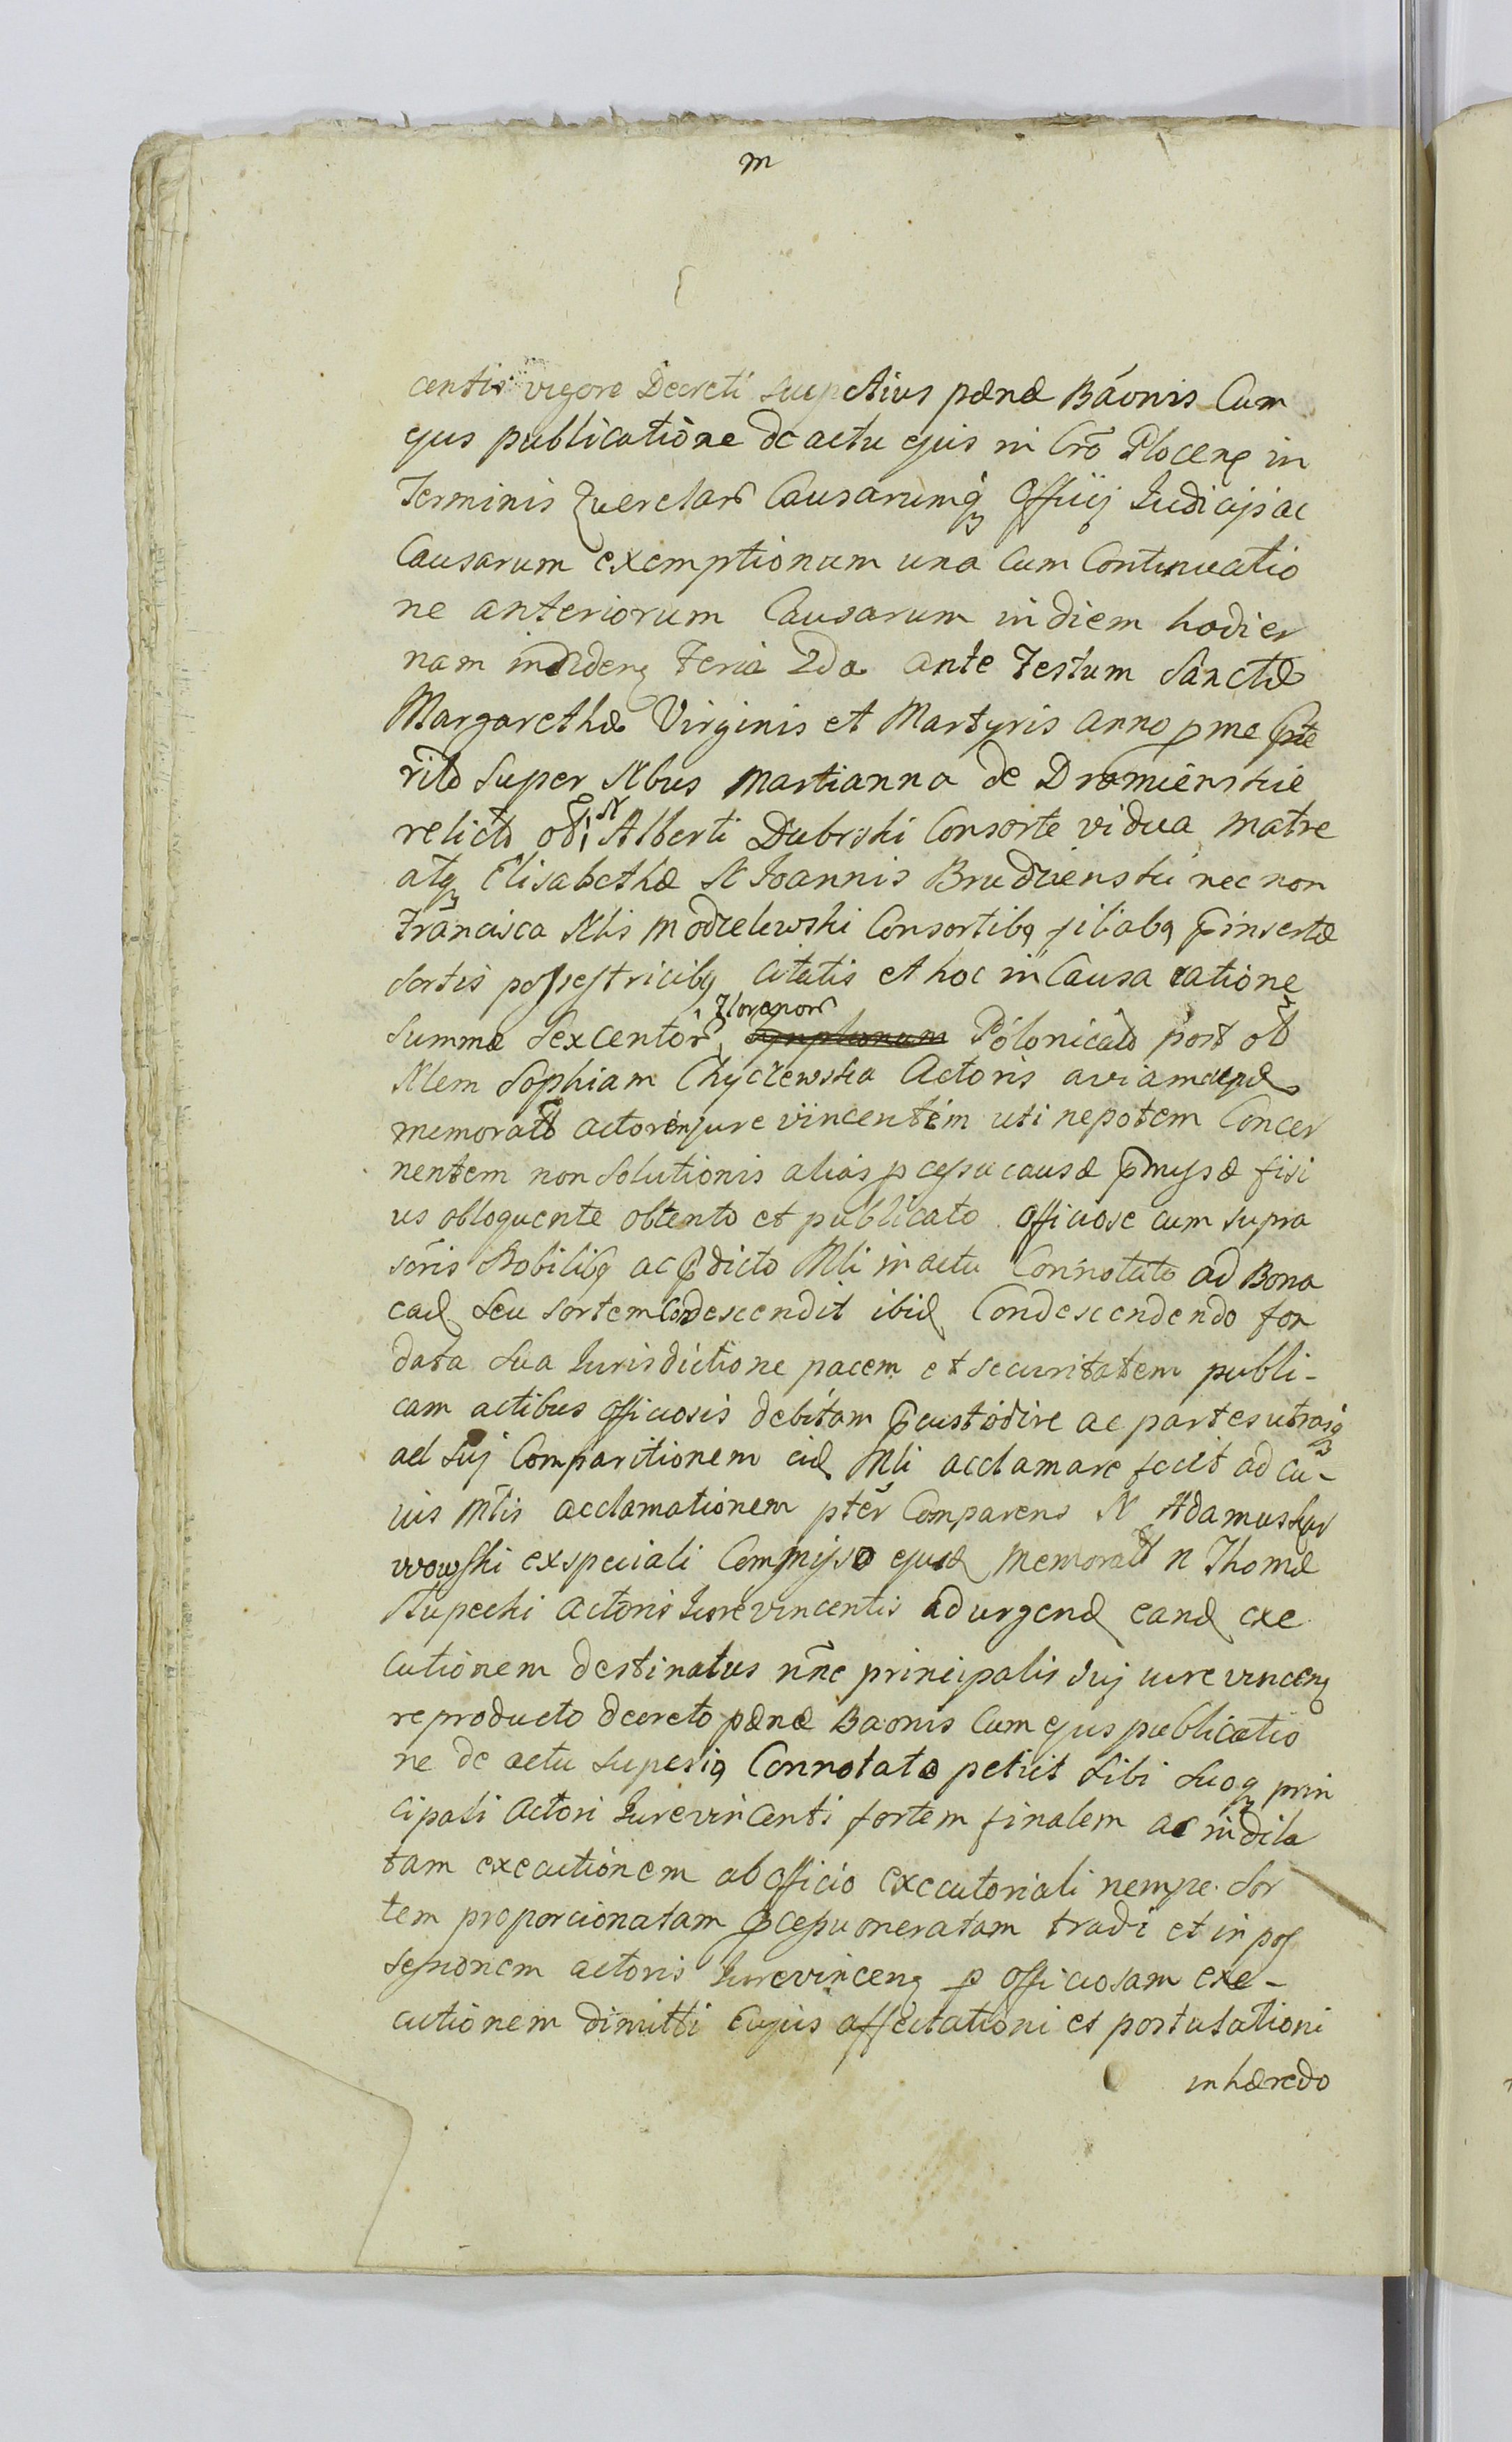 m
centis vigore Decreti suspectivus pænæ Bãonis Cum
ejus publicatione de actu ejus in Crõ Plocen in
Terminis Querelar Causarumq Officij Judicij ac
Causarum exemptionum una cum Continuatio
ne anteriorum Causarum in diem hodier
nam inciden Feria 2da ante Festum Sanctæ
Margarethæ Virginis et Martyris anno pme præte
rito super Nbus Martianna de Dramienskie
relicta oti N Alberti Dubrski Consorte vidua matre
atq Elisabethæ N Joannis Brudzienski nec non
Francisca Nlis Modzelewski Consortibq filiabq pinsertæ
sortis possestricibq citatis et hoc in Causa ratione
summæ Sexcentor Florenor Polonical post ob
Nlem Sophiam Chyczewska Actoris aviam
memorati actorem jure vincentem uti nepotem Concer
nentem non solutionis alias pcessu causæ pmyssæ fisi
us obloquente obtento et publicato officiose cum supra
scris Nobilibq ac pdicto Mli in actu Connotato ad Bona
ead seu sortem Condescendit ibid Condescendendo fun
data sua Jurisdictione pacem et securitatem publi-
cam actibus officiosis debitam pcustodire ac partes utrasq
ad suj Comparitionem eid Mli acclamare fecit ad cu-
ius Mlis acclamationem ptér Comparens N Adamus
wowski ex speciali Commysso ejusd memorati N Thomæ
Stupecki actoris Jure vincentis ad urgend eand exe
cutionem destinatus nñe principalis suj iure vincen
reproducto decreto pænæ Baonis Cum ejus publicatio
ne de actu superiq Connotato petiit sibi suoq prin
cipali Actori Jurevincenti fortem finalem ac indila
tam executionem ab officio executoriali nempe Sor
tem proporcionatam pcessu oneratam tradi et in pos
sessionem actoris Jurevincen p officiosam exe-
cutionem dimitti Cujus affectationi et postulationi
inhæredo